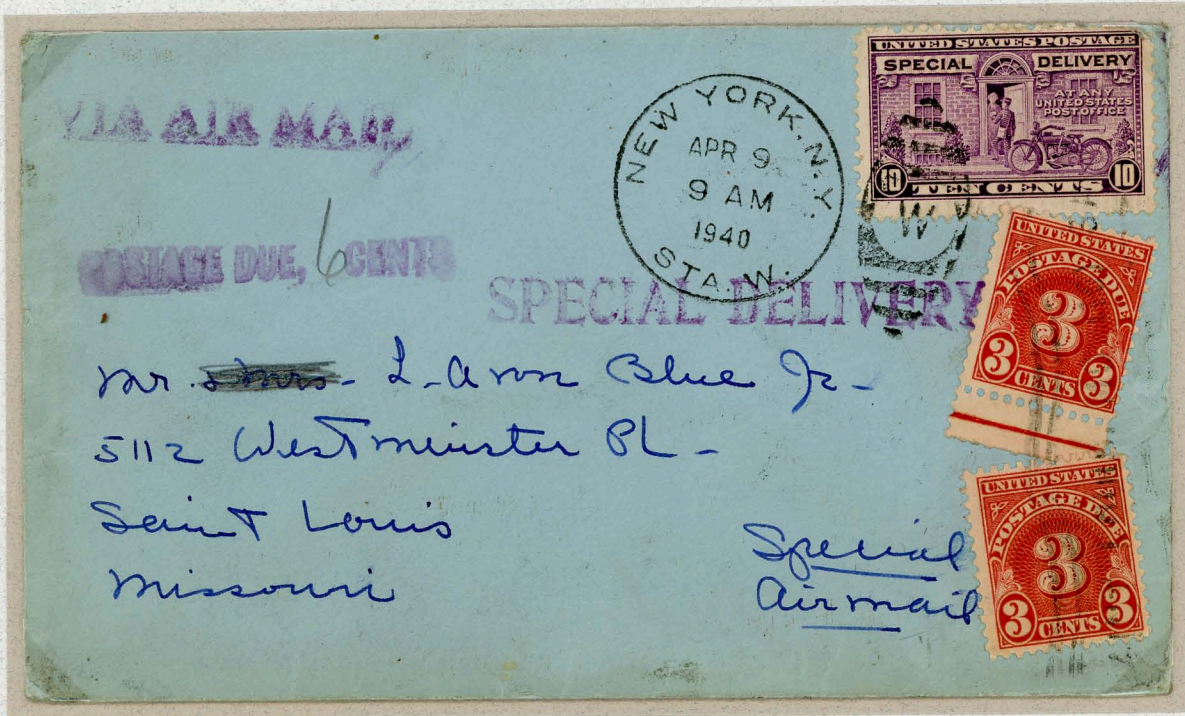 VIA AIR MAIL
POSTAGE DUE, 6 CENTS
NEW YORK, N.Y.
APR 9
9 AM
1940
STA. W.
W
UNITED STATES POSTAGE
SPECIAL DELIVERY
AT ANY
UNITED STATES
POST OFFICE
10 TEN CENTS 10
SPECIAL DELIVERY
UNITED STATES
POSTAGE DUE
3
3 CENTS 3
Mr. & Mrs - L. Avon Blue Jr -
5112 Westminster Pl -
Saint Louis
Missouri
Special
Airmail
UNITED STATES
POSTAGE DUE
3
3 CENTS 3